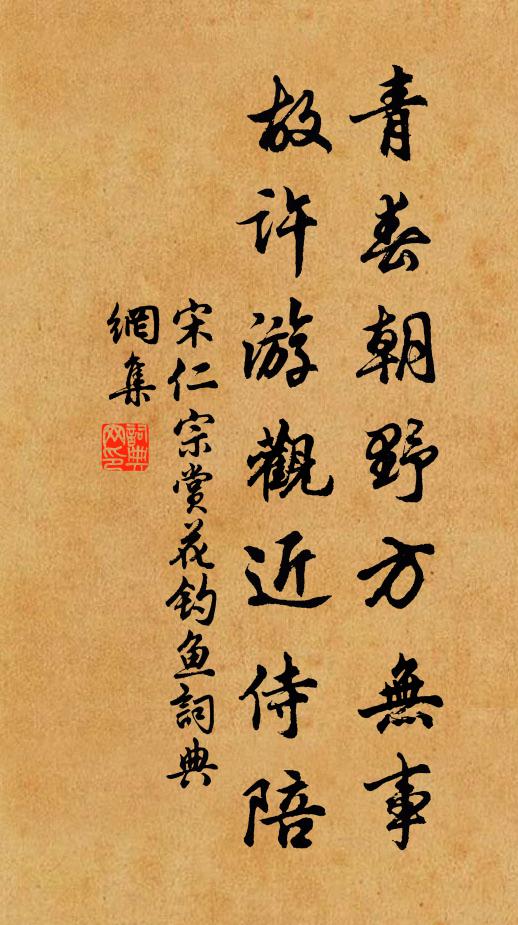 青春朝野方無事
故許游觀近侍陪
宋仁宗赏花钓鱼詞典
網集
詞典
网印